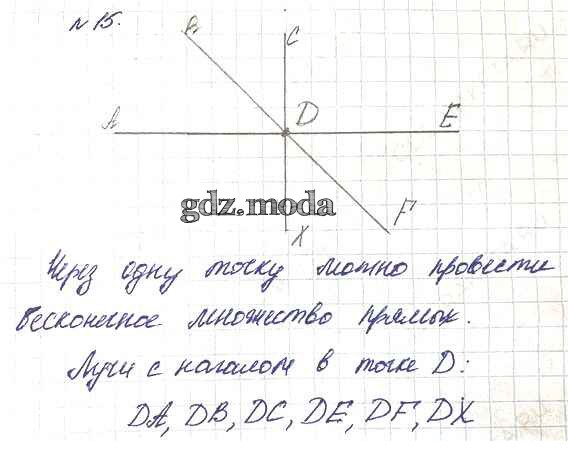 № 15.
B C
A D E
gdz.moda
X F
Через одну точку можно провести
бесконечное множество прямых.
Лучи с началом в точке D:
DA, DB, DC, DE, DF, DX